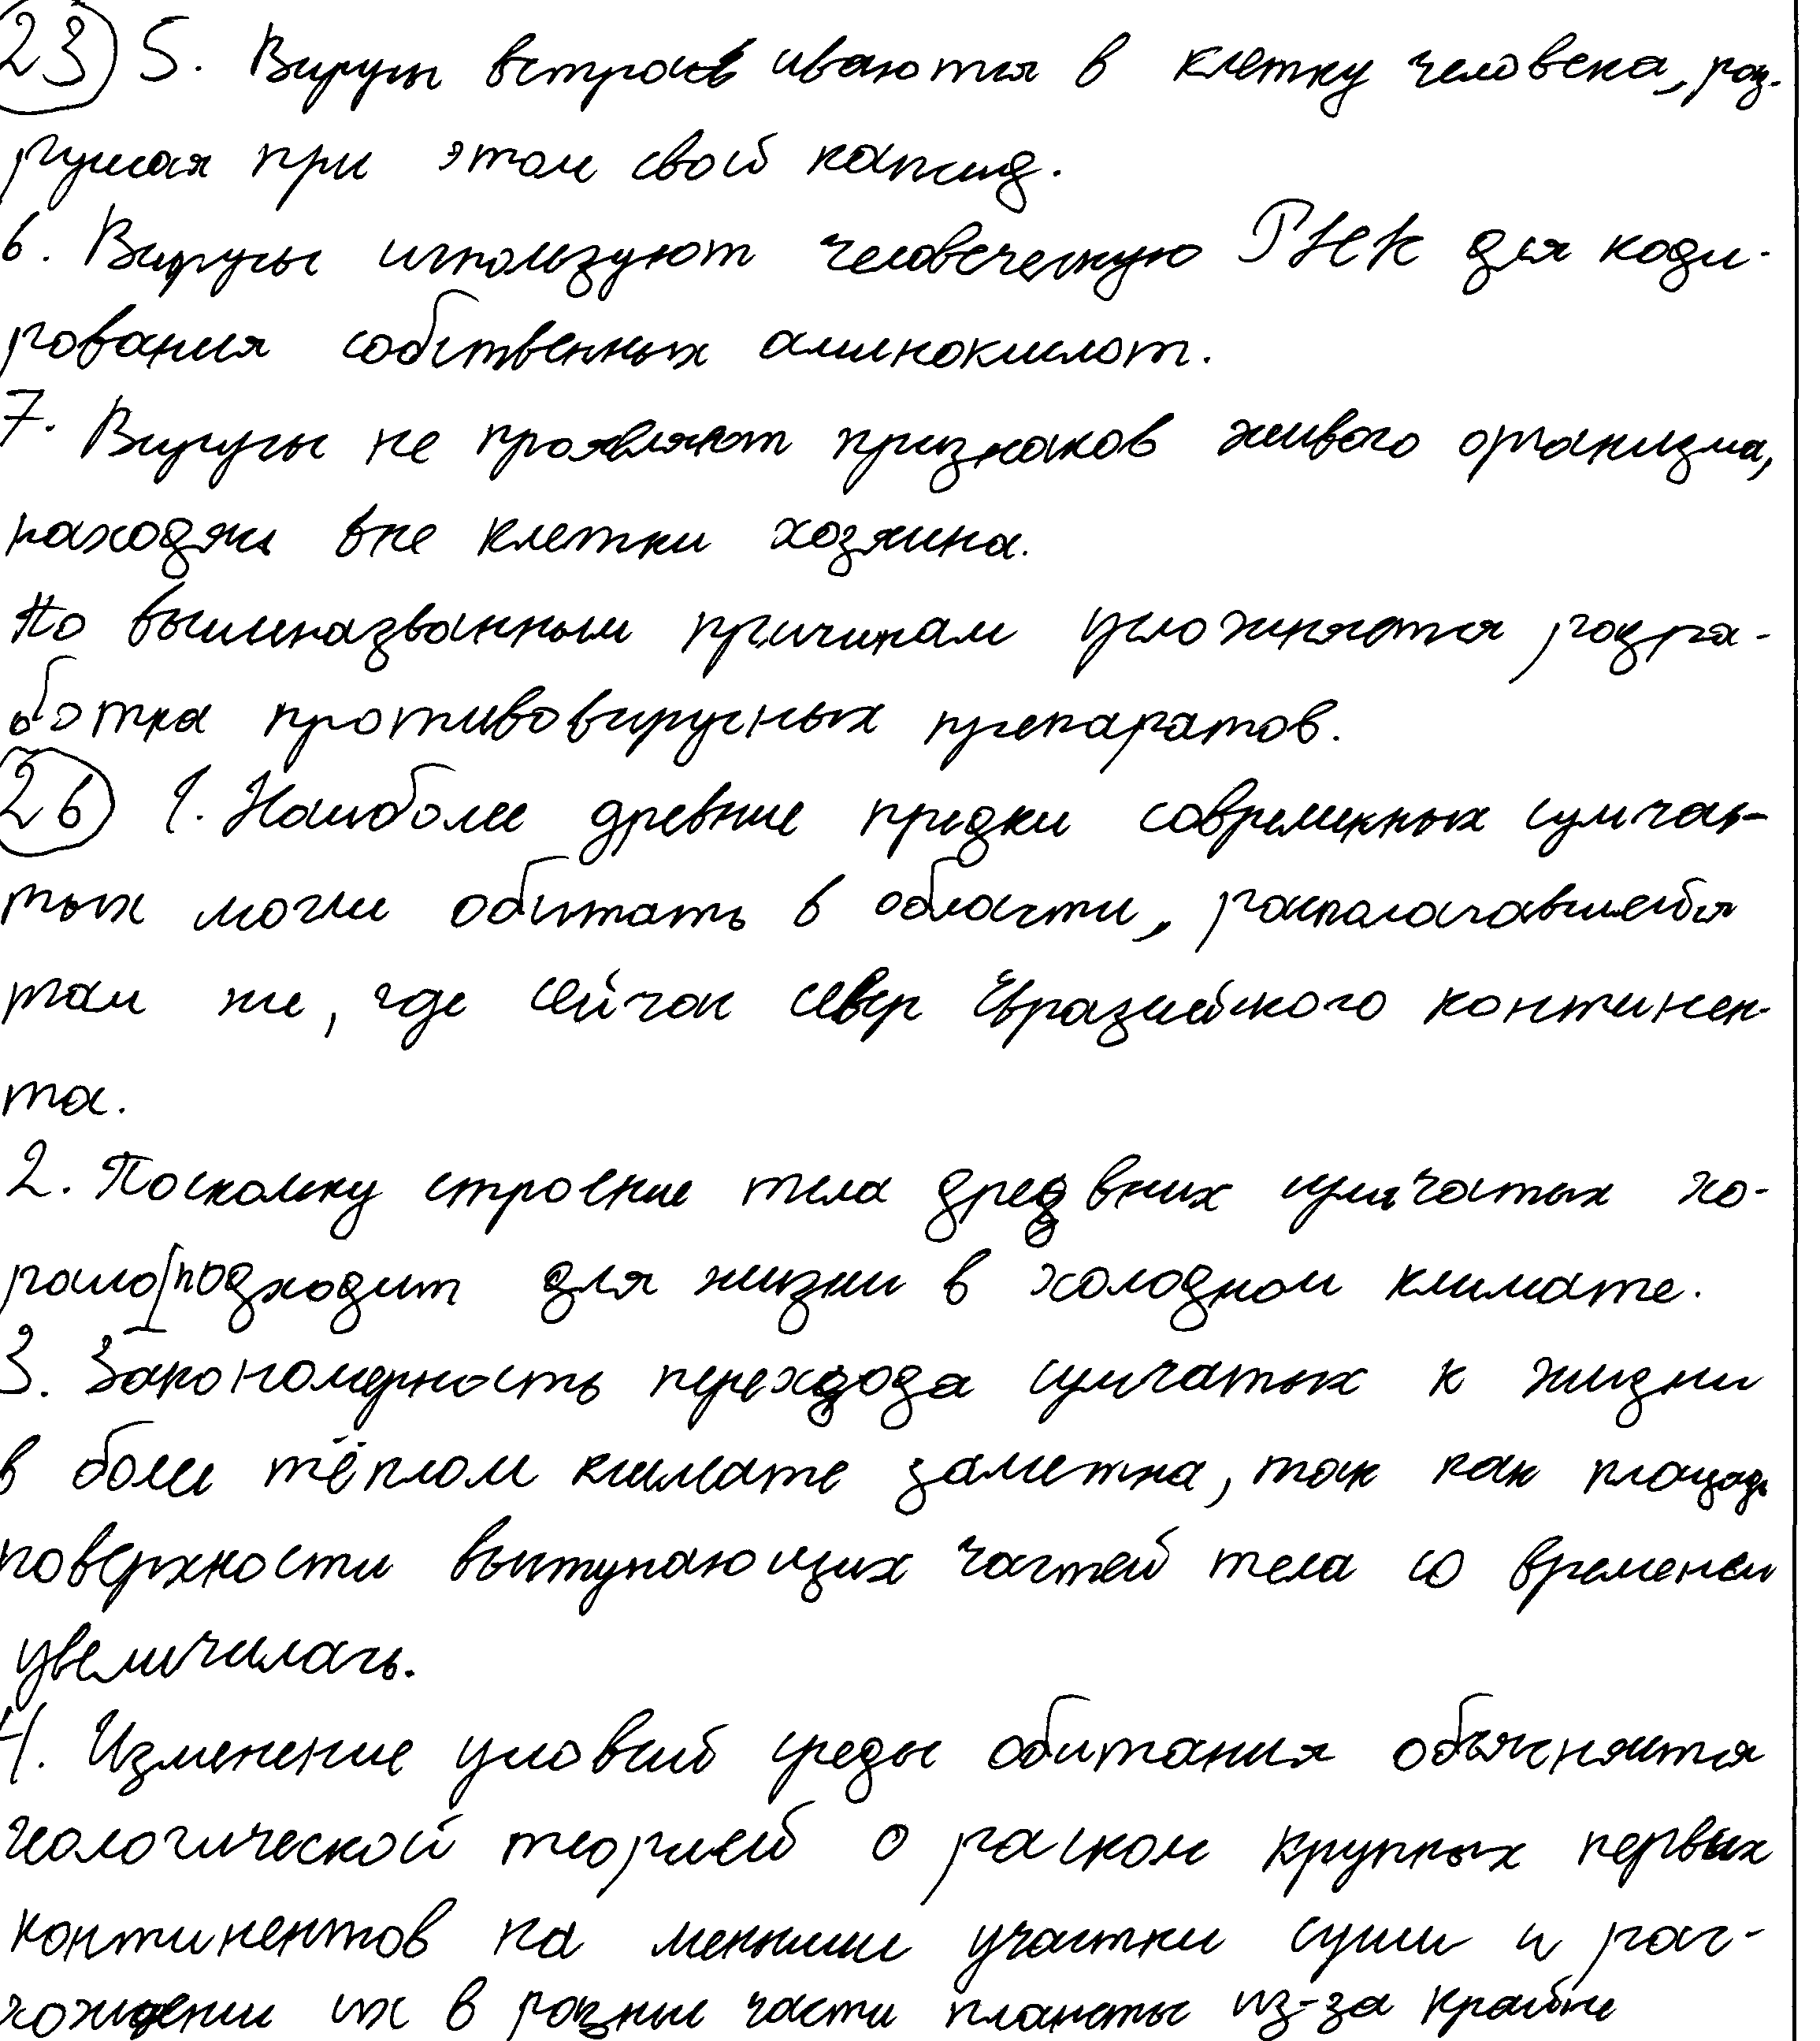 23) 5. Вирусы встраиваются в клетку человека, раз-
рушая при этом свой капсид.
6. Вирусы используют человеческую РНК для коди-
рования собственных аминокислот.
7. Вирусы не проявляют признаков живого организма,
находясь вне клетки хозяина.
По вышеназванным причинам усложняется разра-
ботка противовирусных препаратов.
26) 1. Наиболее древние предки современных сумча-
тых могли обитать в области, располагавшейся
там же, где сейчас север Евразийского континен-
та.
2. Поскольку строение тела древних сумчатых хо-
рошо подходит для жизни в холодном климате.
3. Закономерность перехода сумчатых к жизни
в более тёплом климате заметна, так как площадь
поверхности выступающих частей тела со временем
увеличилась.
4. Изменение условий среды обитания объясняется
геологической теорией о расколе крупных первых
континентов на меньшие участки суши и рас-
хождении их в разные части планеты из-за крайне